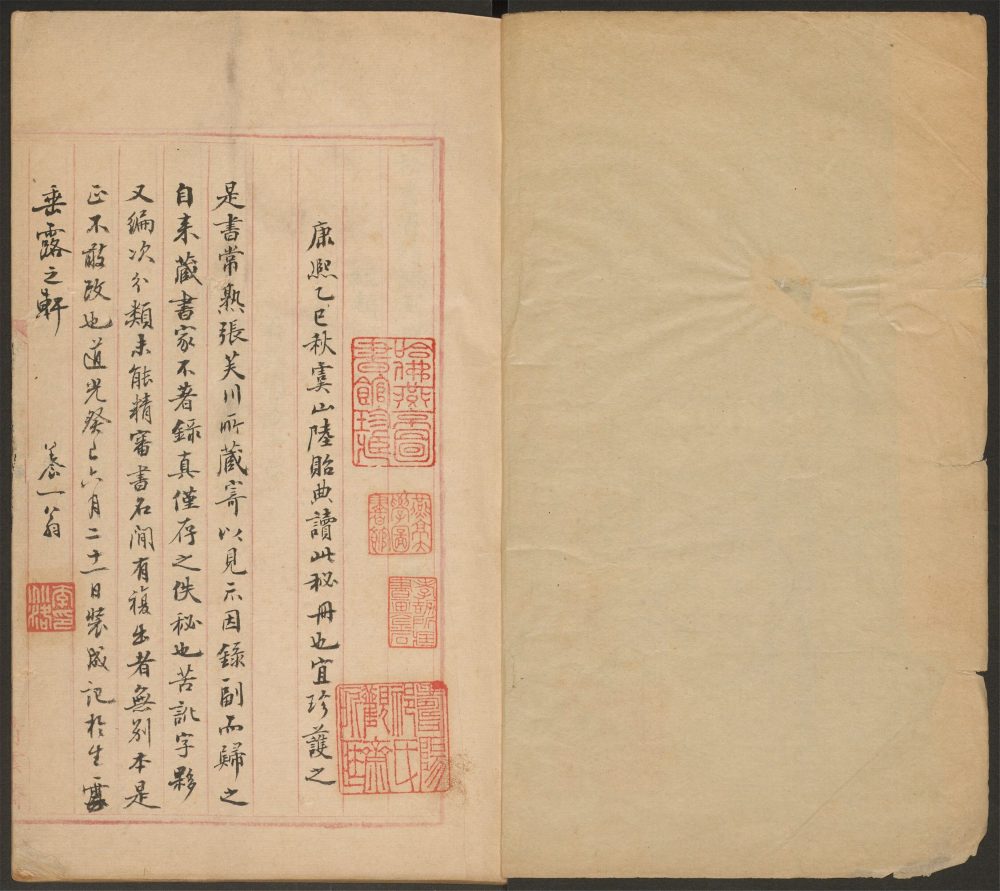 哈佛燕京圖
書館珍藏
康熙乙巳秋虞山陸貽典讀此秘冊也宜珍護之
是書常熟張芙川所藏寄以見示因錄副而歸之
自来藏書家不著錄真僅存之佚秘也苦訛字夥
又編次分類未能精審書名間有複出者無別本是
正不敢改也道光癸巳六月二十一日裝成記於生雲
垂露之軒 養一翁
李印
兆洛